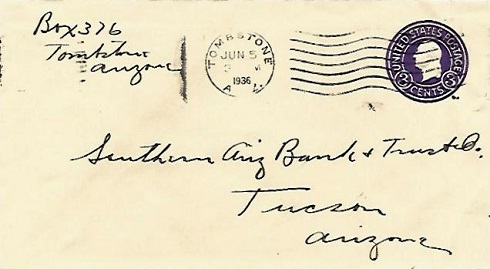 Box 376
Tombstone
Arizona
TOMBSTONE
JUN 5
1936
UNITED STATES POSTAGE
3 CENTS 3
Southern Ariz Bank & Trust Co.
Tucson
Arizona